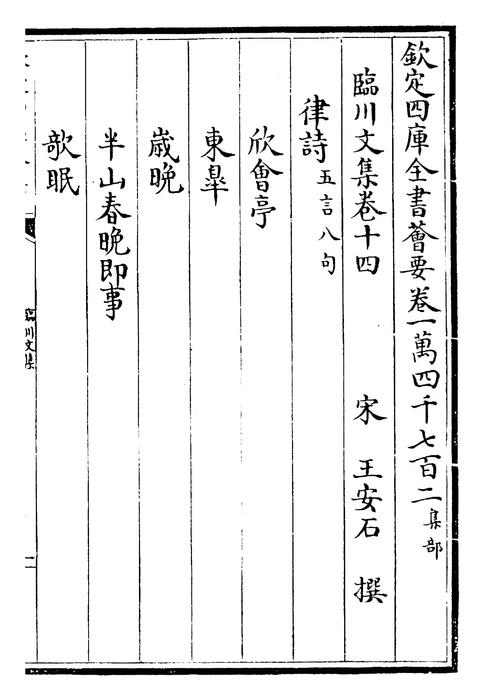 欽定四庫全書薈要卷一萬四千七百二 集部
臨川文集卷十四 宋 王安石 撰
律詩 五言八句
欣會亭
東臯
歲晚
半山春晚即事
欹眠
臨川文集